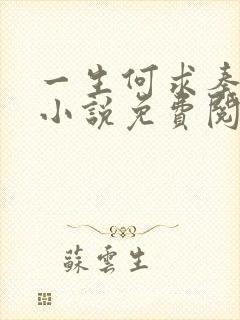 一生何求秦
小說免費閱
蘇雲生